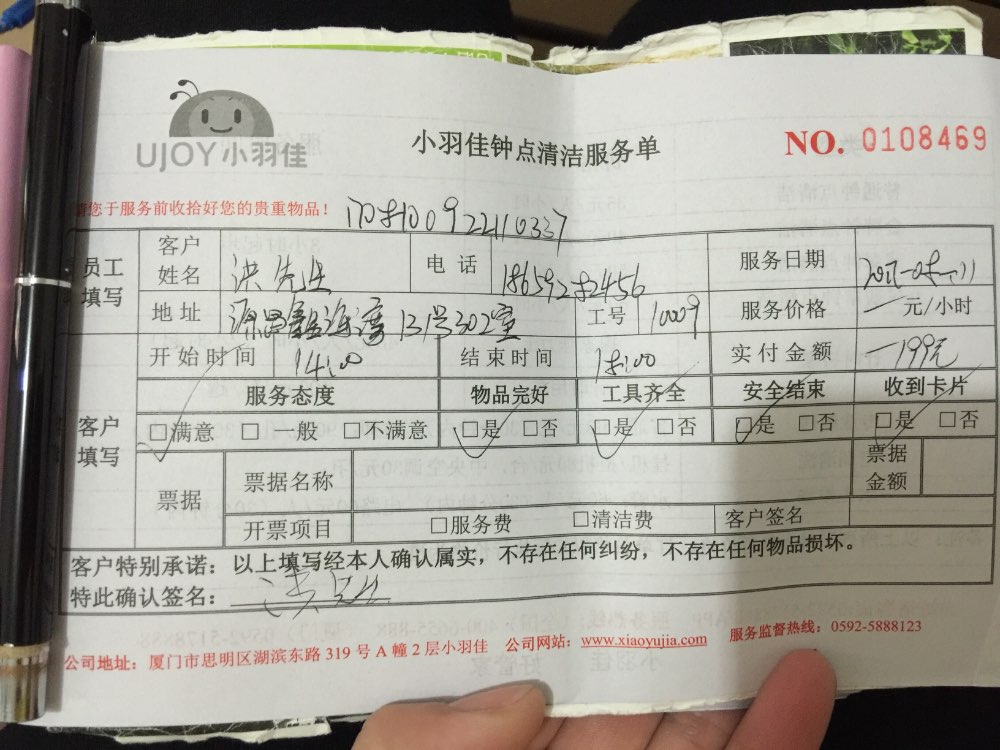 UJOY小羽佳
小羽佳钟点清洁服务单
NO. 0108469
请您于服务前收拾好您的贵重物品!
员工填写
客户姓名 洪先生 电话
服务日期
地址 13号302室 工号 10009
服务价格 一元/小时
开始时间 14:00 结束时间 18:00 实付金额 一199元
客户填写
服务态度 物品完好 工具齐全 安全结束 收到卡片
□满意 □一般 □不满意 □是 □否 □是 □否 □是 □否 □是 □否
票据 票据名称 票据金额
开票项目 □服务费 □清洁费 客户签名
客户特别承诺:以上填写经本人确认属实,不存在任何纠纷,不存在任何物品损坏。
特此确认签名: 洪先生
公司地址:厦门市思明区湖滨东路 319 号 A 幢 2 层小羽佳 公司网站:www.xiaoyujia.com 服务监督热线:0592-5888123